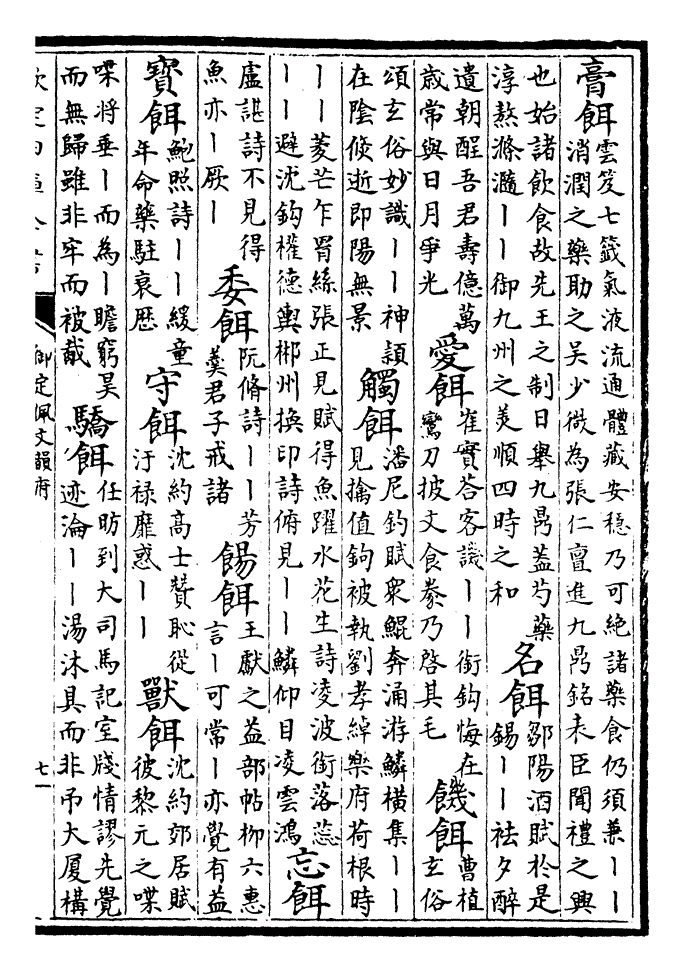 膏餌雲笈七籤氣液流通體藏安穩乃可絕諸藥食仍須兼丨丨
消潤之藥助之吳少微為張仁亶進九鼎銘表臣聞禮之興
也始諸飲食故先王之制日舉九鼎蓋芍藥
淳熬滌瀡丨丨御九州之美順四時之和
名餌鄒陽酒賦於是
錫丨丨袪夕醉
遺朝酲吾君壽億萬
歲常與日月爭光
愛餌崔實荅客譏丨丨銜鈎悔在
鸞刀披文食豢乃啓其毛
饑餌曹植
玄俗
頌玄俗妙識丨丨神頴
在陰倐逝即陽無景
觸餌潘尼釣賦衆鯤奔涌游鱗橫集丨丨
見擒值鈎被執劉孝綽樂府荷根時
丨丨菱芒乍罥絲張正見賦得魚躍水花生詩凌波銜落蕊
丨丨避沈鈎權德輿郴州換印詩俯見丨丨鱗仰目凌雲鴻
忘餌
盧諶詩不見得
魚亦丨厥丨
委餌阮脩詩丨丨芳
羮君子戒諸
餳餌王獻之益部帖柳六惠
言丨可常丨亦覺有益
寶餌鮑照詩丨丨緩童
年命藥駐衰歷
守餌沈約高士贊恥從
汙祿靡惑丨丨
獸餌沈約郊居賦
彼黎元之喋
喋將垂丨而為丨瞻窮昊
而無歸雖非牢而被胾
驕餌任昉到大司馬記室牋情謬先覺
迹淪丨丨湯沐具而非弔大厦構
欽定四庫全書
御定佩文韻府
七